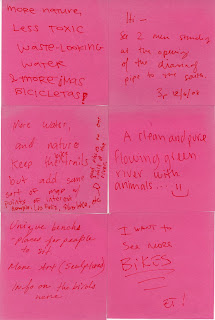 MORE NATURE,
LESS TOXIC
WASTE-LOOKING
WATER
& MORE ¡MAS
BICICLETAS!
Hi -
So I was standing
at the opening
of the drainage
pipe to the
More water,
and nature
Keep the trails
but add some
sort of map w/
points of interest
A clean and pure
flowing green
river with
animals...
Unique benches
places for people
to sit
More Art (Sculptures)
Info on the
I want to
See more
BiKES